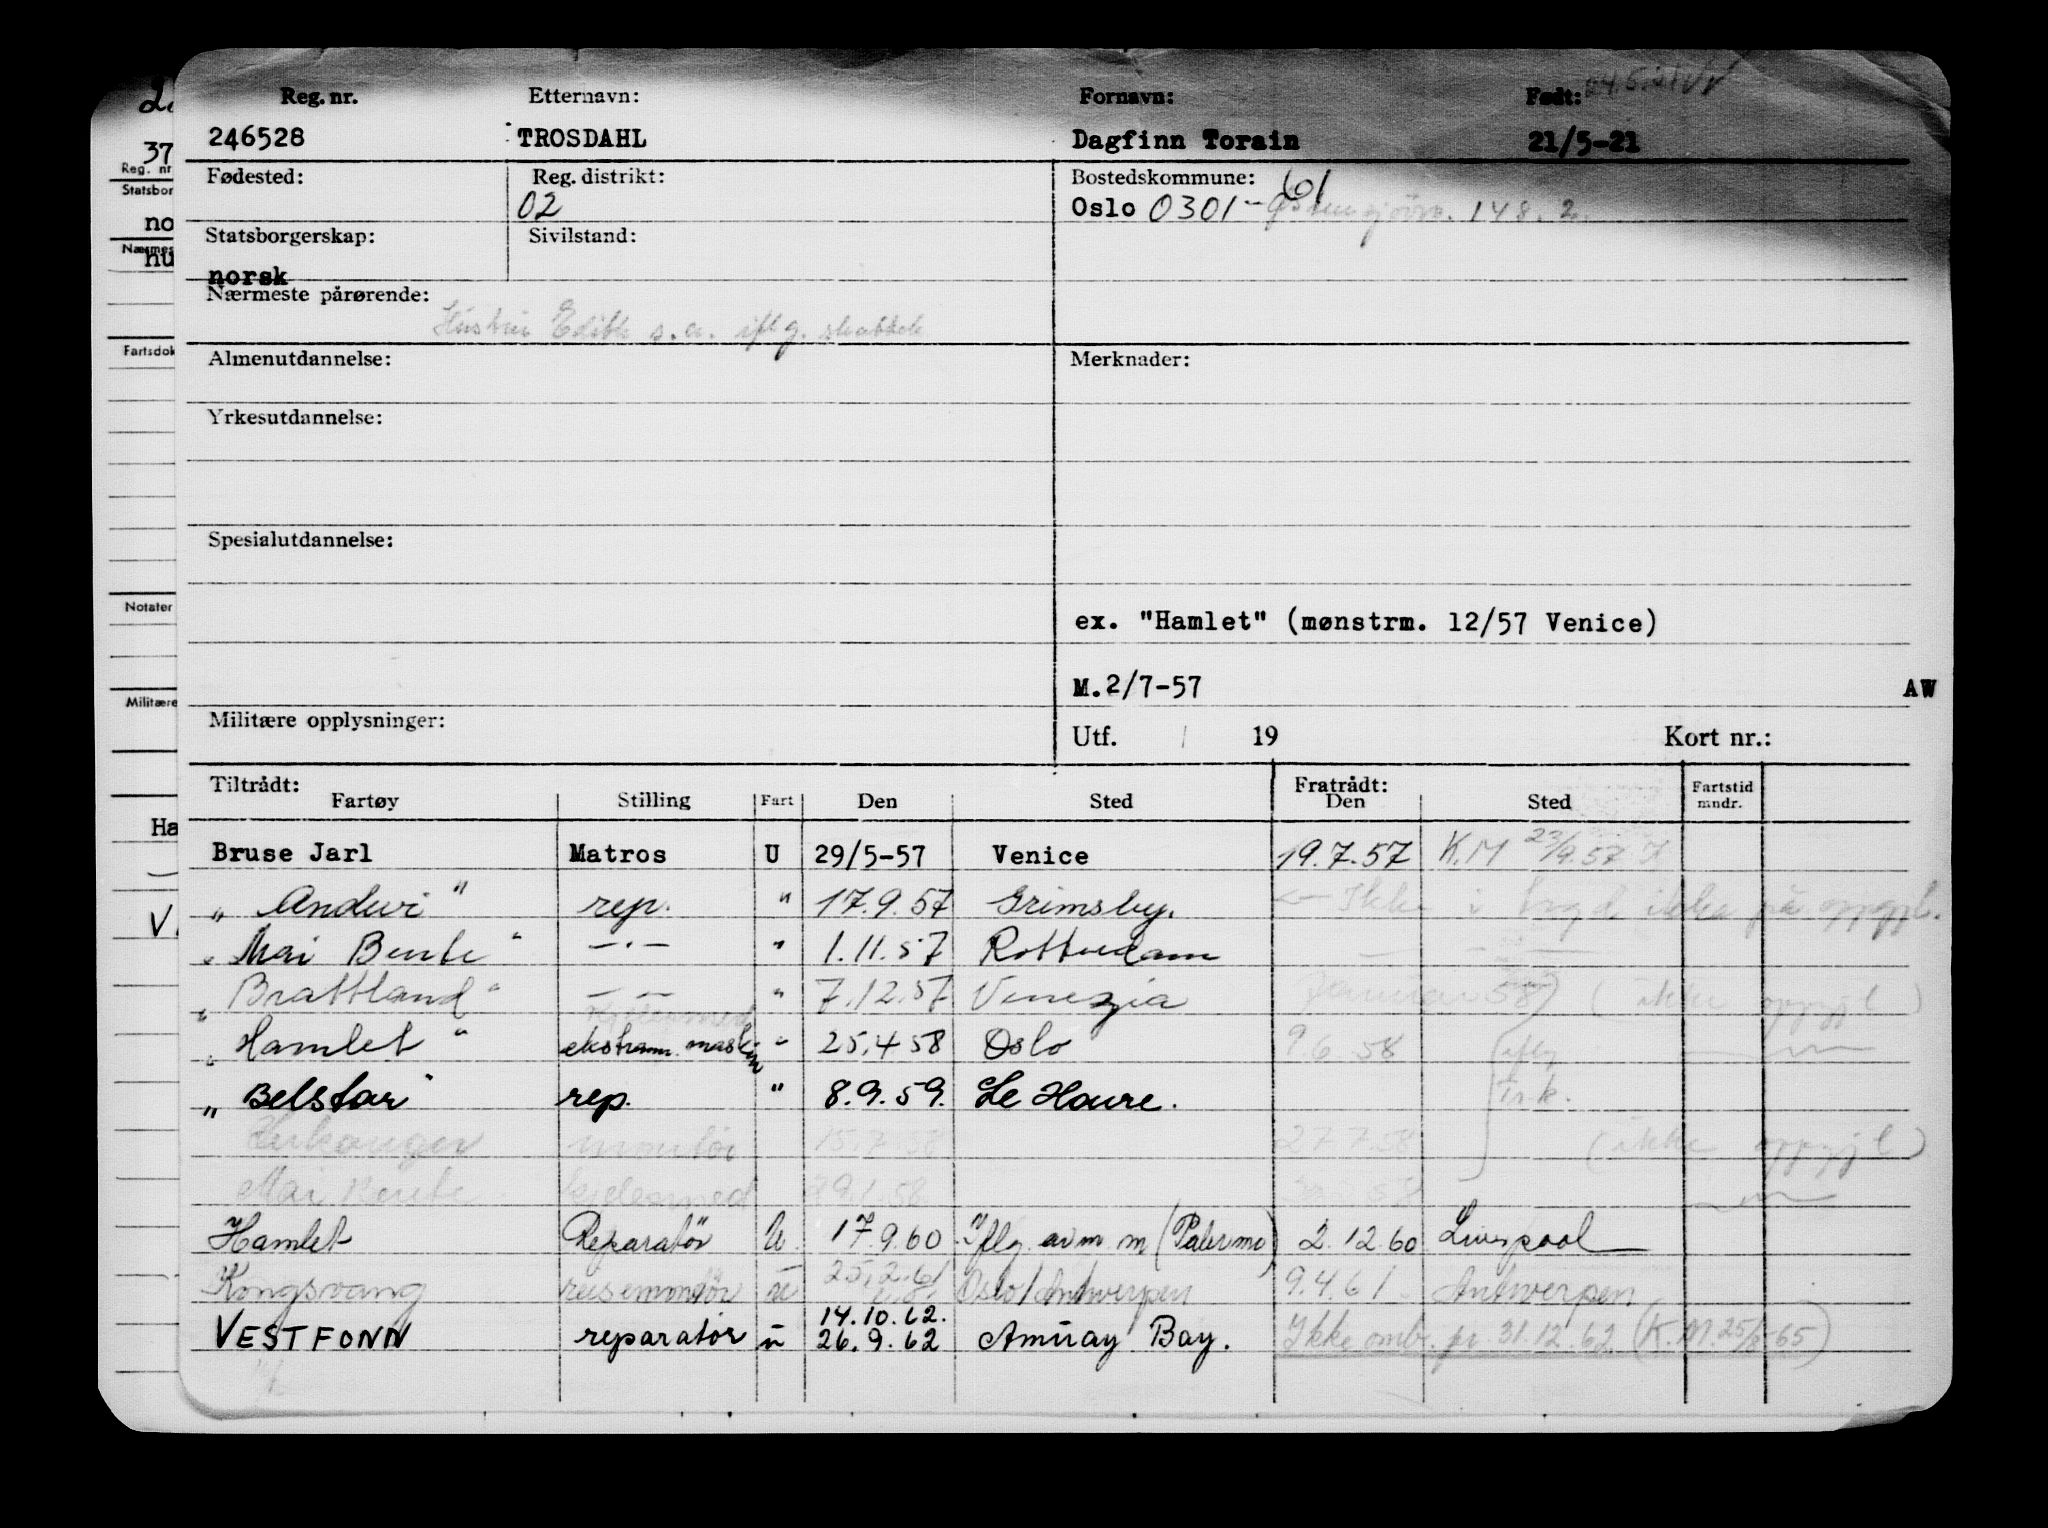 Reg. nr. Etternavn: Fornavn: Født:
246528 TROSDAHL Dagfinn Torain 21/5-21
Fødested: Reg. distrikt: Bostedskommune: 61
02 Oslo 0301 148.
Statsborgerskap: Sivilstand:
norsk
Nærmeste pårørende:
Hustru Edith s.a. iflg.
Almenutdannelse: Merknader:
Yrkesutdannelse:
Spesialutdannelse:
ex. "Hamlet" (mønstrm. 12/57 Venice)
M.2/7-57 AW
Militære opplysninger: Utf. 19 Kort nr.:
Tiltrådt: Fratrådt: Fartstid
Fartøy Stilling Fart Den Sted Den Sted mndr.
Bruse Jarl Matros U 29/5-57 Venice 19.7.57 K.M 23/9.57
" Andwi " rep. " 17.9.57 Grimsby. Ikke i ikke på oppgj.
" Mai Bente " —.— " 1.11.57 Rotterdam
" Brattland " — — " 7.12.57 Venezia Januar 58) (ikke oppgjl)
kjelesmed
" Hamlet " ekstram. maskin " 25.4 58 Oslo 9.6.58 iflg
" Belstar " rep. " 8.9.59. Le Havre. Tr.k.
montør 15.7.58 27.7.58 (ikke oppgjl)
Mai Bente kjelesmed 29.1.58 58
Hamlet Reparatör U 17.9.60 Iflg. avm. m (Palermo) 2.12.60 Liverpool
Kongsvang reisemontör u 25.2.61 Oslo/Antwerpen 9.4.61. Antwerpen
14.10.62.
VESTFONN reparatør u 26.9.62 Amuay Bay. Ikke omb. pr. 31.12.62 (K.M. 25/8 65)
37
Reg. nr
Statsbor
no
Nærmes
nu
Fartsdok
Notater
Militære
Ha
V